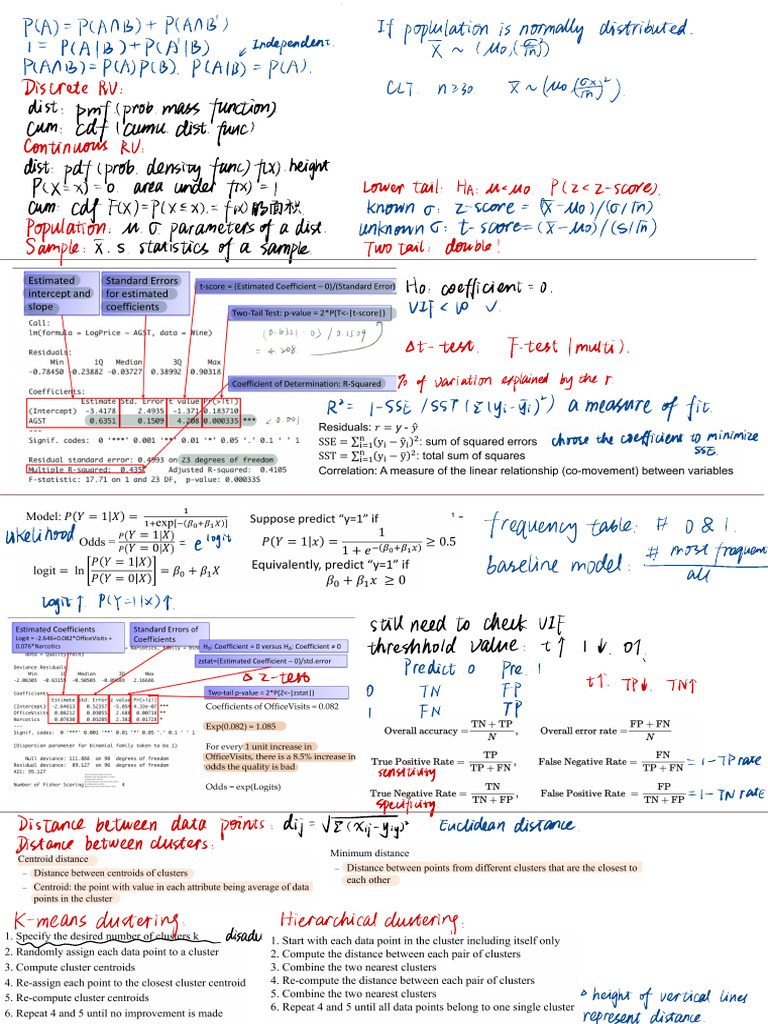 P(A) = P(A∩B) + P(A∩B')
1 = P(A|B) + P(A'|B)
Independent.
P(A∩B) = P(A)P(B). P(A|B) = P(A).
Discrete RV:
dist: pmf (prob. mass function)
cum: cdf (cumu. dist. func)
Continuous RV:
dist: pdf (prob. density func) f(x). height
P(X=x)=0. area under f(x)=1
cum: cdf F(x)=P(X≤x). = f(x)的面积
Population: μ. σ parameters of a dist.
Sample: x̄. s. statistics of a sample.
If population is normally distributed.
X̄ ~ (μ0, (σ/√n)²)
CLT. n≥30 X̄ ~ (μ0, (σx/√n)²).
Lower tail: HA: μ<μ0 P(z<z-score).
known σ: z-score = (x̄-μ0)/(σ/√n)
unknown σ: t-score = (x̄-μ0)/(s/√n)
Two tail: double!
Estimated intercept and slope
Standard Errors for estimated coefficients
t-score = (Estimated Coefficient – 0)/(Standard Error)
Two-Tail Test: p-value = 2*P(T<-|t-score|)
Call:
lm(formula = LogPrice ~ AGST, data = Wine)
(0.6351-0)/0.1509
= 4.208
Residuals:
Min 1Q Median 3Q Max
-0.78450 -0.23882 -0.03727 0.38992 0.90318
Coefficient of Determination: R-Squared
Coefficients:
Estimate Std. Error t value Pr(>|t|)
(Intercept) -3.4178 2.4935 -1.371 0.183710
AGST 0.6351 0.1509 4.208 0.000335 ***
---
Signif. codes: 0 '***' 0.001 '**' 0.01 '*' 0.05 '.' 0.1 ' ' 1
Residual standard error: 0.4993 on 23 degrees of freedom
Multiple R-squared: 0.435, Adjusted R-squared: 0.4105
F-statistic: 17.71 on 1 and 23 DF, p-value: 0.000335
H0: coefficient = 0.
VIF < 10 ✓
Δt-test. F-test (multi).
% of variation explained by the r.
R² = 1-SSE/SST (Σ(yi-ȳi)²) a measure of fit.
Residuals: r = y - ŷ
SSE = Σⁿᵢ₌₁(yᵢ – ŷᵢ)²: sum of squared errors
SST = Σⁿᵢ₌₁(yᵢ – ȳ)²: total sum of squares
choose the coefficients to minimize SSE.
Correlation: A measure of the linear relationship (co-movement) between variables
Model: P(Y = 1|X) = 1/(1+exp[-(β0+β1X)])
likelihood
Odds = P(Y = 1|X)/P(Y = 0|X) = e^logit
logit = ln[P(Y = 1|X)/P(Y = 0|X)] = β0 + β1X
logit↑ P(Y=1|X)↑.
Suppose predict "y=1" if
P(Y = 1|x) = 1/(1 + e^-(β0+β1x)) ≥ 0.5
Equivalently, predict "y=1" if
β0 + β1x ≥ 0
frequency table: # 0 & 1.
baseline model: # most frequent / all
Estimated Coefficients
Logit = -2.646+0.082*OfficeVisits + 0.076*Narcotics
Standard Errors of Coefficients
H0: Coefficient = 0 versus HA: Coefficient ≠ 0
zstat=(Estimated Coefficient – 0)/std.error
Δ z-test
Deviance Residuals:
Min 1Q Median 3Q Max
Two-tail p-value = 2*P(Z<-|zstat|)
Coefficients:
Estimate Std. Error z value Pr(>|z|)
(Intercept) -2.64613 0.52357 -5.054 4.33e-07 ***
OfficeVisits 0.08212 0.03055 2.688 0.00718 **
Narcotics 0.07630 0.03205 2.381 0.01728 *
---
Signif. codes: 0 '***' 0.001 '**' 0.01 '*' 0.05 '.' 0.1 ' ' 1
(Dispersion parameter for binomial family taken to be 1)
Null deviance: 111.888 on 98 degrees of freedom
Residual deviance: 89.127 on 96 degrees of freedom
AIC: 95.127
Number of Fisher Scoring 4
Coefficients of OfficeVisits = 0.082
Exp(0.082) = 1.085
For every 1 unit increase in OfficeVisits, there is a 8.5% increase in odds the quality is bad
Odds = exp(Logits)
still need to check VIF
threshhold value: t↑ 1↓. 0↑.
Predict 0 Pre. 1
0 TN FP
1 FN TP
t↑. TP↓. TN↑
Overall accuracy = (TN + TP)/N, Overall error rate = (FP + FN)/N
True Positive Rate = TP/(TP + FN) False Negative Rate = FN/(TP + FN) = 1-TP rate
sensitivity
True Negative Rate = TN/(TN + FP) False Positive Rate = FP/(TN + FP) = 1-TN rate
specificity
Distance between data points: dij = √Σ(xij-yij)² Euclidean distance
Distance between clusters:
Centroid distance
– Distance between centroids of clusters
– Centroid: the point with value in each attribute being average of data points in the cluster
Minimum distance
– Distance between points from different clusters that are the closest to each other
K-means clustering:
1. Specify the desired number of clusters k disadv
2. Randomly assign each data point to a cluster
3. Compute cluster centroids
4. Re-assign each point to the closest cluster centroid
5. Re-compute cluster centroids
6. Repeat 4 and 5 until no improvement is made
Hierarchical clustering:
1. Start with each data point in the cluster including itself only
2. Compute the distance between each pair of clusters
3. Combine the two nearest clusters
4. Re-compute the distance between each pair of clusters
5. Combine the two nearest clusters
6. Repeat 4 and 5 until all data points belong to one single cluster
Δ height of vertical lines
represent distance.